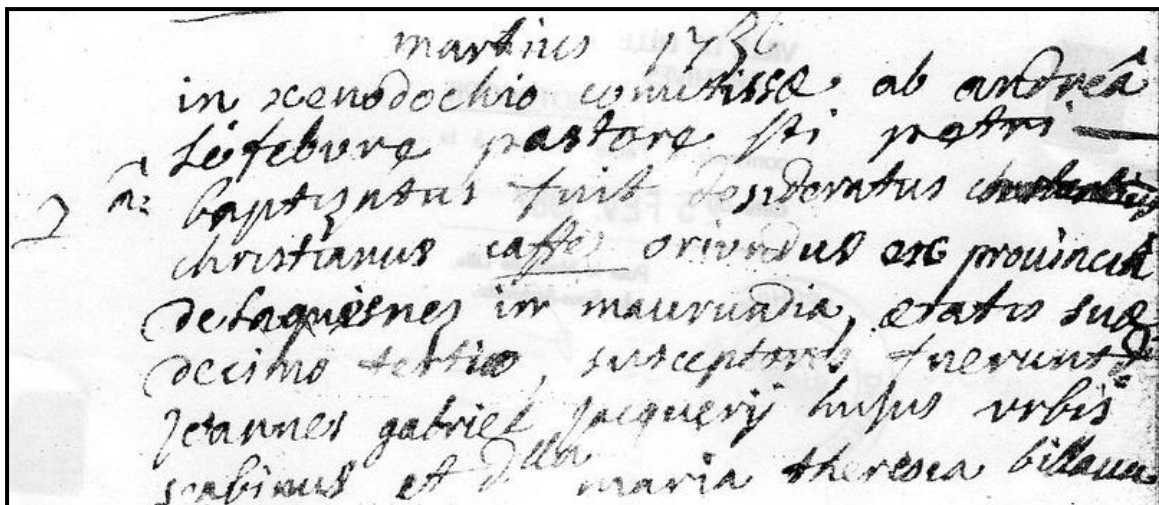 martius 1736
in xenodochio comitissæ ab andreâ
Lefebvre pastore sti petri
2 a: baptizatus fuit desideratus
christianus caffé oriundus ex provinciâ
de Laquisnes in maurundia, ætatis suæ
decimo tertio, susceptores fuerunt D:
Joannes gabriel Jacquerij hujus urbis
scabinus et dlla maria theresia billau